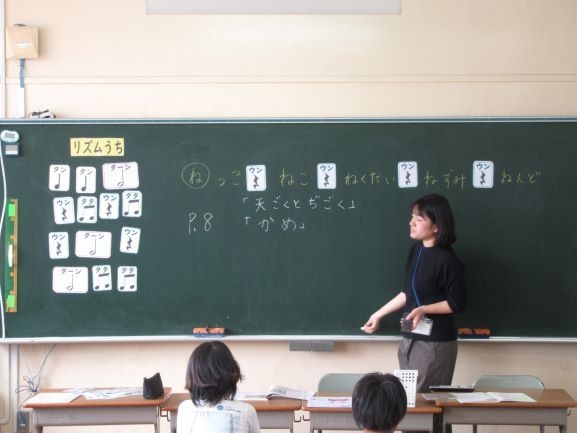 リズムうち
タン タン ターン
ウン タタ ウン タタ
ウン ターン ウン
ターン タタ タタ
ねっこ ウン ねこ ウン ねくたい ウン ねずみ ウン ねんど
「天ごくとぢごく」
P.8 「かめ」